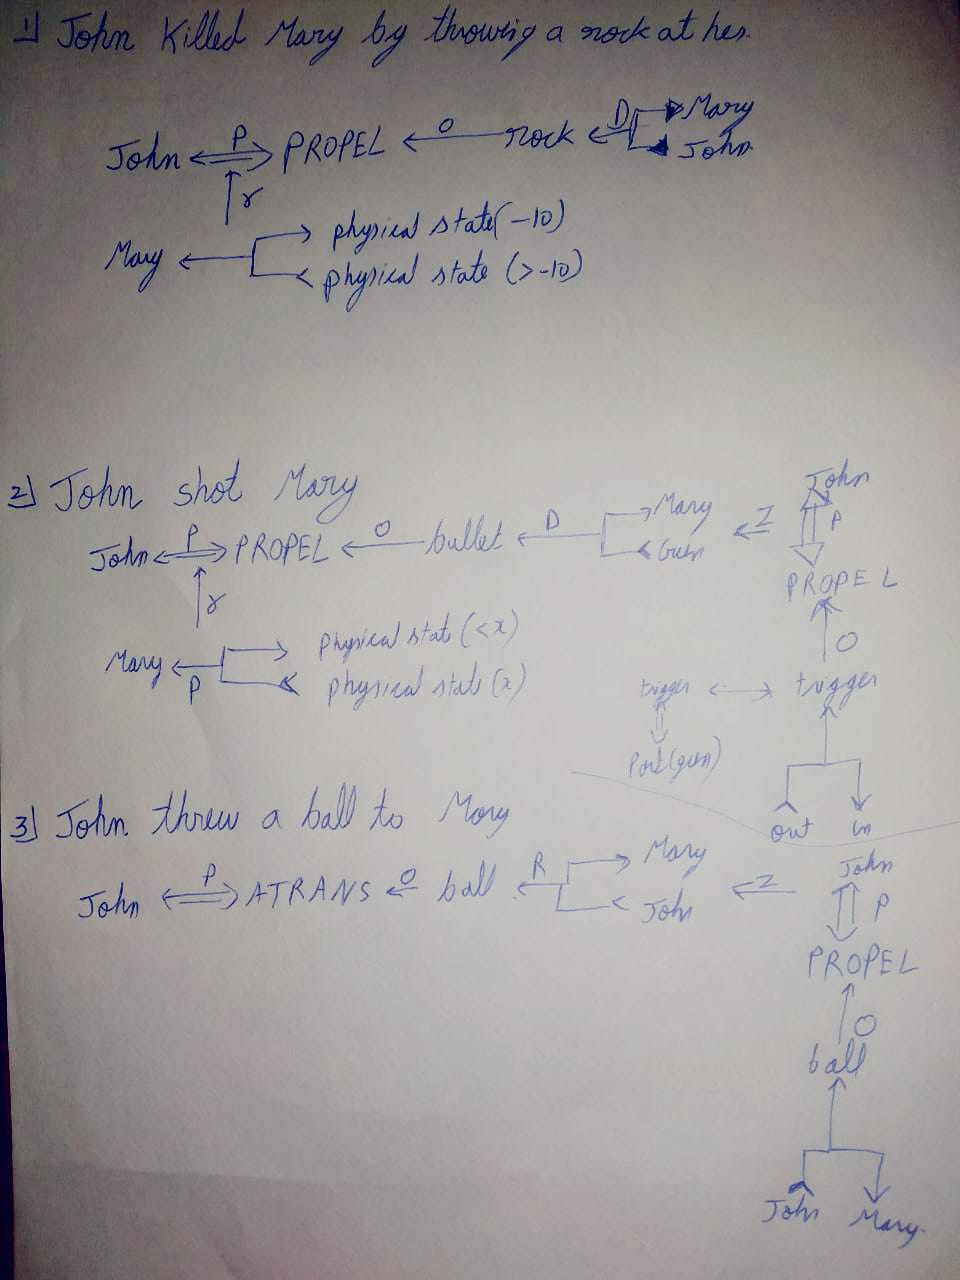 1) John Killed Mary by throwing a rock at her.
John P PROPEL O rock D Mary
John
r
Mary physical state (-10)
physical state (>-10)
2) John shot Mary
John P PROPEL O bullet D Mary I John
Gun P
PROPEL
r O
Mary P physical state (<x)
physical state (x)
trigger trigger
Part (gun)
out in
3) John threw a ball to Mary
John P ATRANS O ball R Mary I John
John P
PROPEL
O
ball
John Mary